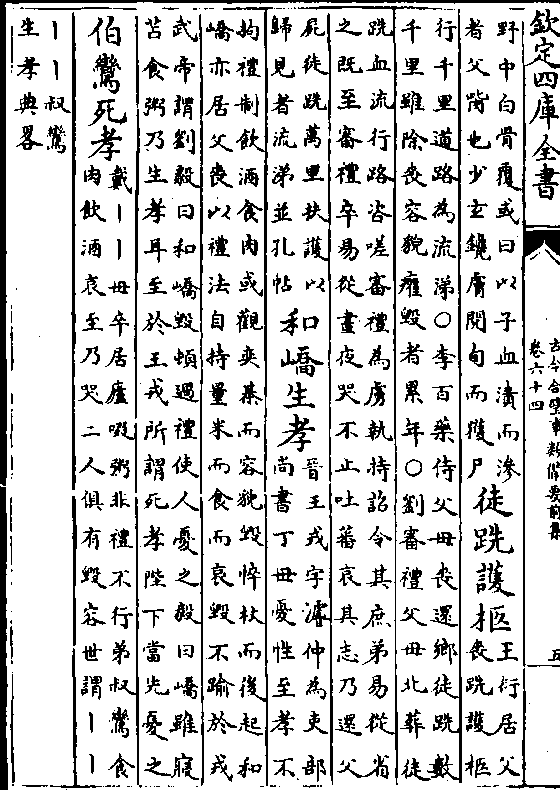 欽定四庫全書
古今合璧事類備要前集
卷六十四
五
野中白骨覆或曰以子血漬而滲
者父胔也少玄鑱膚閱旬而獲尸
徒跣護柩
王衍居父
喪跣護柩
行千里道路為流涕○李百藥侍父母喪還鄉徒跣數
千里雖除喪容貌癯毀者累年○劉審禮父母北葬徒
跣血流行路咨嗟審禮為虜執持詔令其庶弟易從省
之既至審禮卒易從晝夜哭不止吐蕃哀其志乃還父
屍徒跣萬里扶護以
歸見者流涕並孔帖
和嶠生孝
晉王戎字濬仲為吏部
尚書丁母憂性至孝不
拘禮制飲酒食肉或觀奕棊而容貌毀悴杖而後起和
嶠亦居父喪以禮法自持量米而食而哀毀不踰於戎
武帝謂劉毅曰和嶠毀頓過禮使人憂之毅曰嶠雖寢
苫食粥乃生孝耳至於王戎所謂死孝陛下當先憂之
伯鸞死孝
戴丨丨母卒居廬啜粥非禮不行弟叔鸞食
肉飲酒哀至乃哭二人俱有毀容世謂丨丨
丨丨叔鸞
生孝典畧